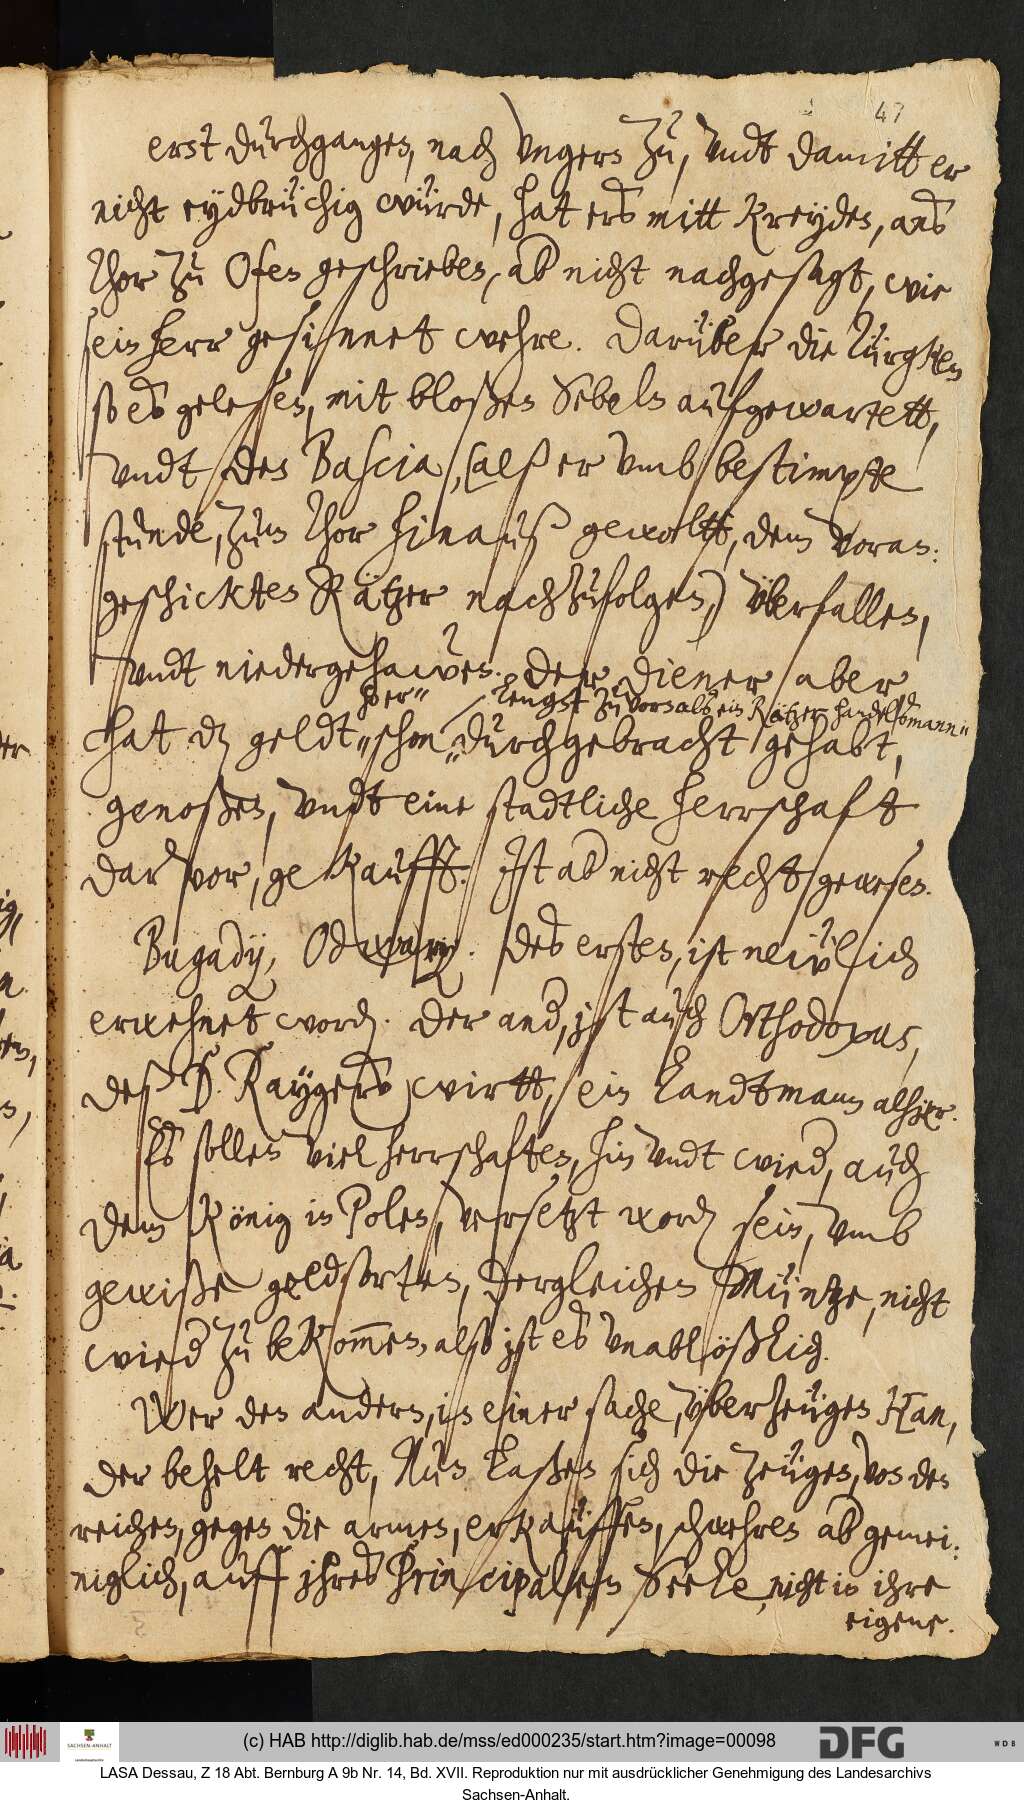 47
erst durchgangen, nach Ungern zu, undt damitt er
nicht eydbrüchig würde, hat ers mitt Kreyden, ans
Thor zu Ofen geschrieben, ab nicht nachgesagt, wie
sein herr gesinnet wehre. Darüber die Türgken
so es gelesen, mit bloßen Sebeln aufgewartett,
undt den Bascia, (alß er umb bestimpte
stunde, zum Thor hinauß gewoltt, dem voran:
geschickten Rätzen nachzufolgen,) überfallen,
undt niedergehawen. Der Diener aber
hat dz geldt, schon lengst zuvor als ein Rätzer handelßmann
durchgebracht gehabt,
genoßen, undt eine stadtliche herrschaft
darvor, gekaufft. Ist ab nicht recht gewesen.
Bugady, . Des ersten, ist neulich
erwehnet word. Der and, ist auch Orthodoxus,
deß D. Raygers wirtt, ein Landtmann alhier.
Es sollen viel herrschaften, hin undt wied, auch
dem König in Polen, versetzt word sein, umb
gewiße geldsorten, dergleichen Müntze, nicht
wied zu bekommen, also ist es unablößlich.
Wer den andern, in einer sache, überzeugen kan,
der behelt recht, Nun laßen sich die zeugen, von den
reichen, gegen die armen, erkauffen, schwehren ab gemei:
niglich, auff ihres Principalen Seele, nicht in ihre
eigene.
(c) HAB http://diglib.hab.de/mss/ed000235/start.htm?image=00098
DFG
SACHSEN-ANHALT
WDB
LASA Dessau, Z 18 Abt. Bernburg A 9b Nr. 14, Bd. XVII. Reproduktion nur mit ausdrücklicher Genehmigung des Landesarchivs
Sachsen-Anhalt.